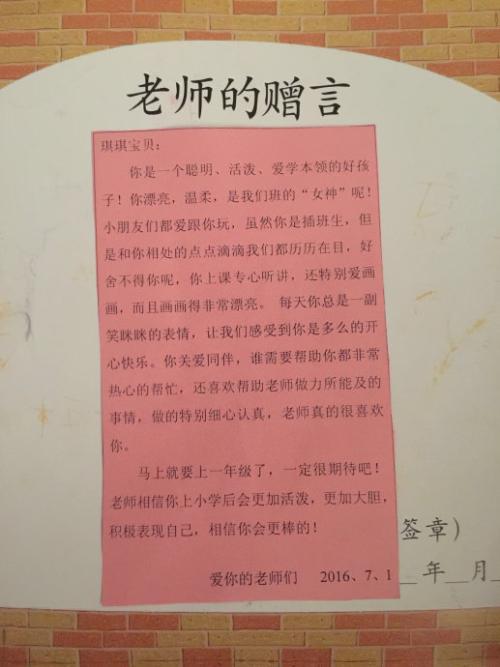 老师的赠言
琪琪宝贝：
你是一个聪明、活泼、爱学本领的好孩
子！你漂亮，温柔，是我们班的“女神”呢！
小朋友们都爱跟你玩，虽然你是插班生，但
是和你相处的点点滴滴我们都历历在目，好
舍不得你呢，你上课专心听讲，还特别爱画
画，而且画画得非常漂亮。 每天你总是一副
笑眯眯的表情，让我们感受到你是多么的开
心快乐。你关爱同伴，谁需要帮助你都非常
热心的帮忙，还喜欢帮助老师做力所能及的
事情，做的特别细心认真，老师真的很喜欢
你。
马上就要上一年级了，一定很期待吧！
老师相信你上小学后会更加活泼，更加大胆，
积极表现自己，相信你会更棒的！
签章）
爱你的老师们 2016、7、1
年 月